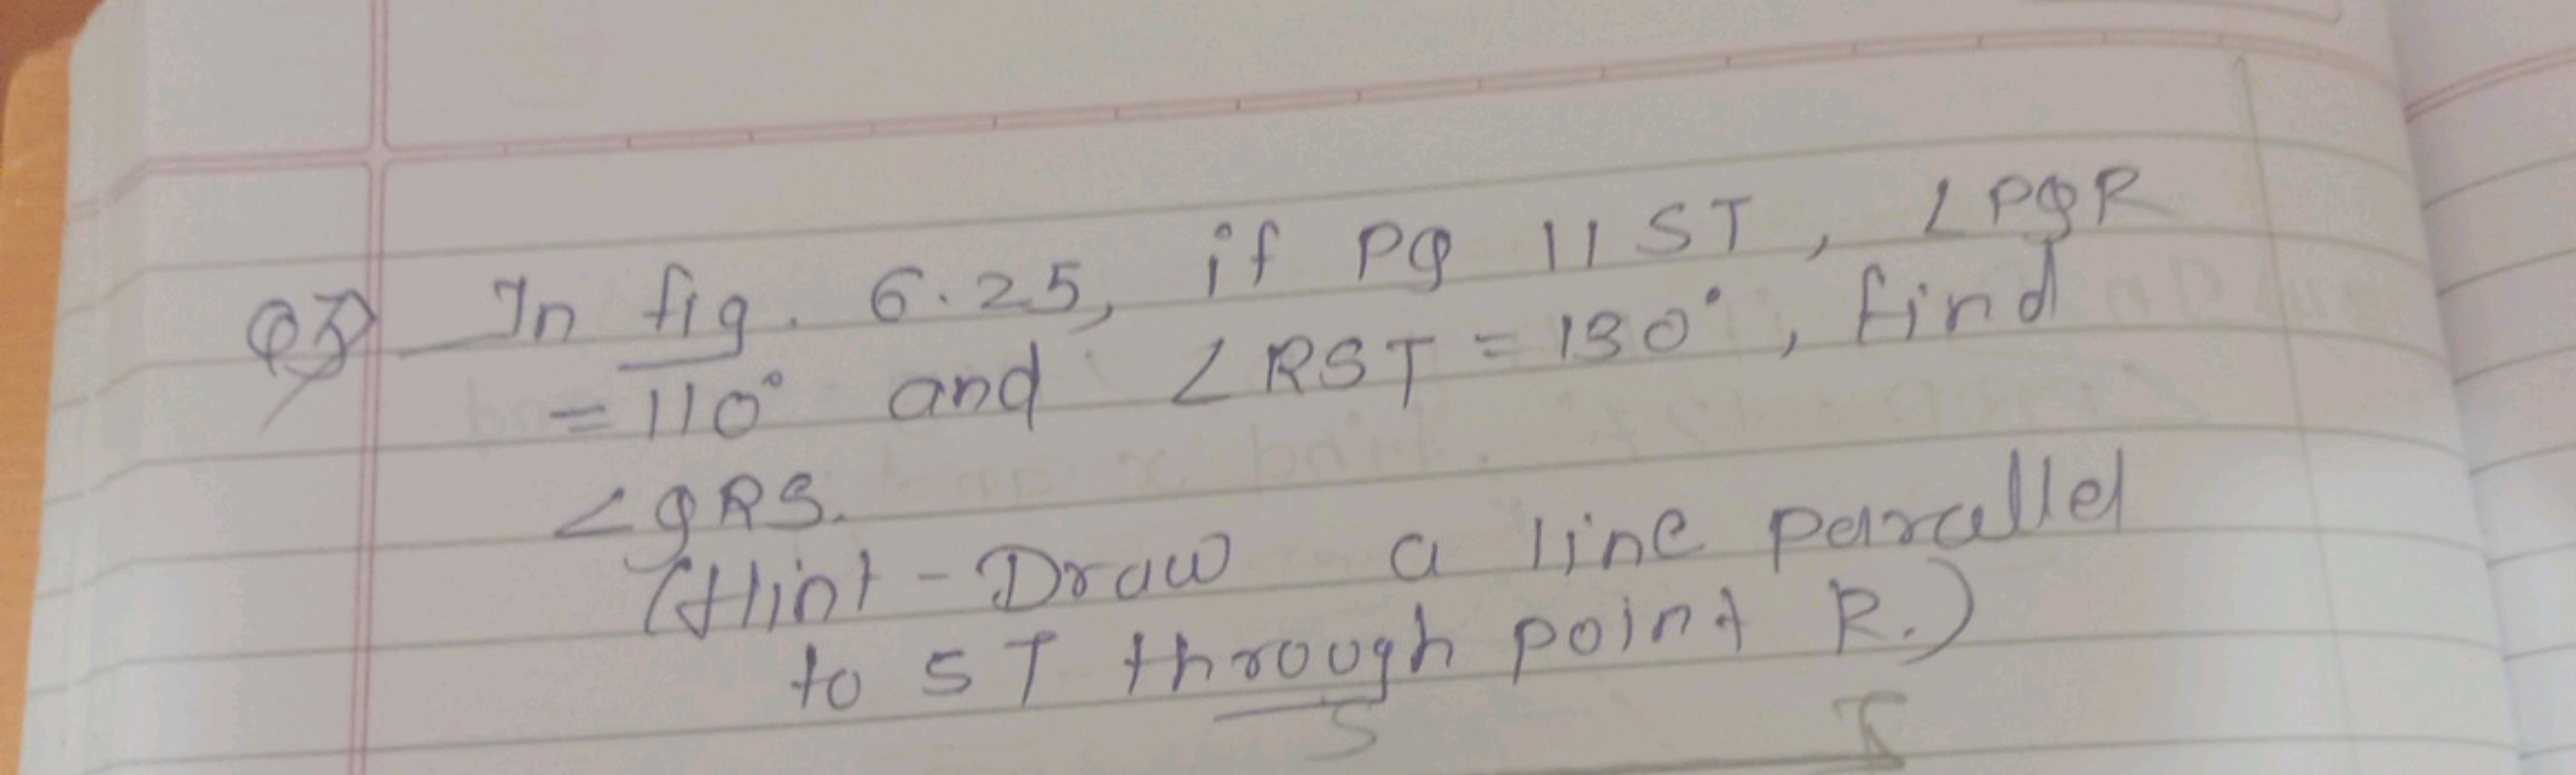 Q3) In fig. 6.25, if PQ || ST, ∠PQR
= 110° and ∠RST = 130°, find
∠QRS.
(Hint - Draw a line parallel
to ST through point R.)
S T